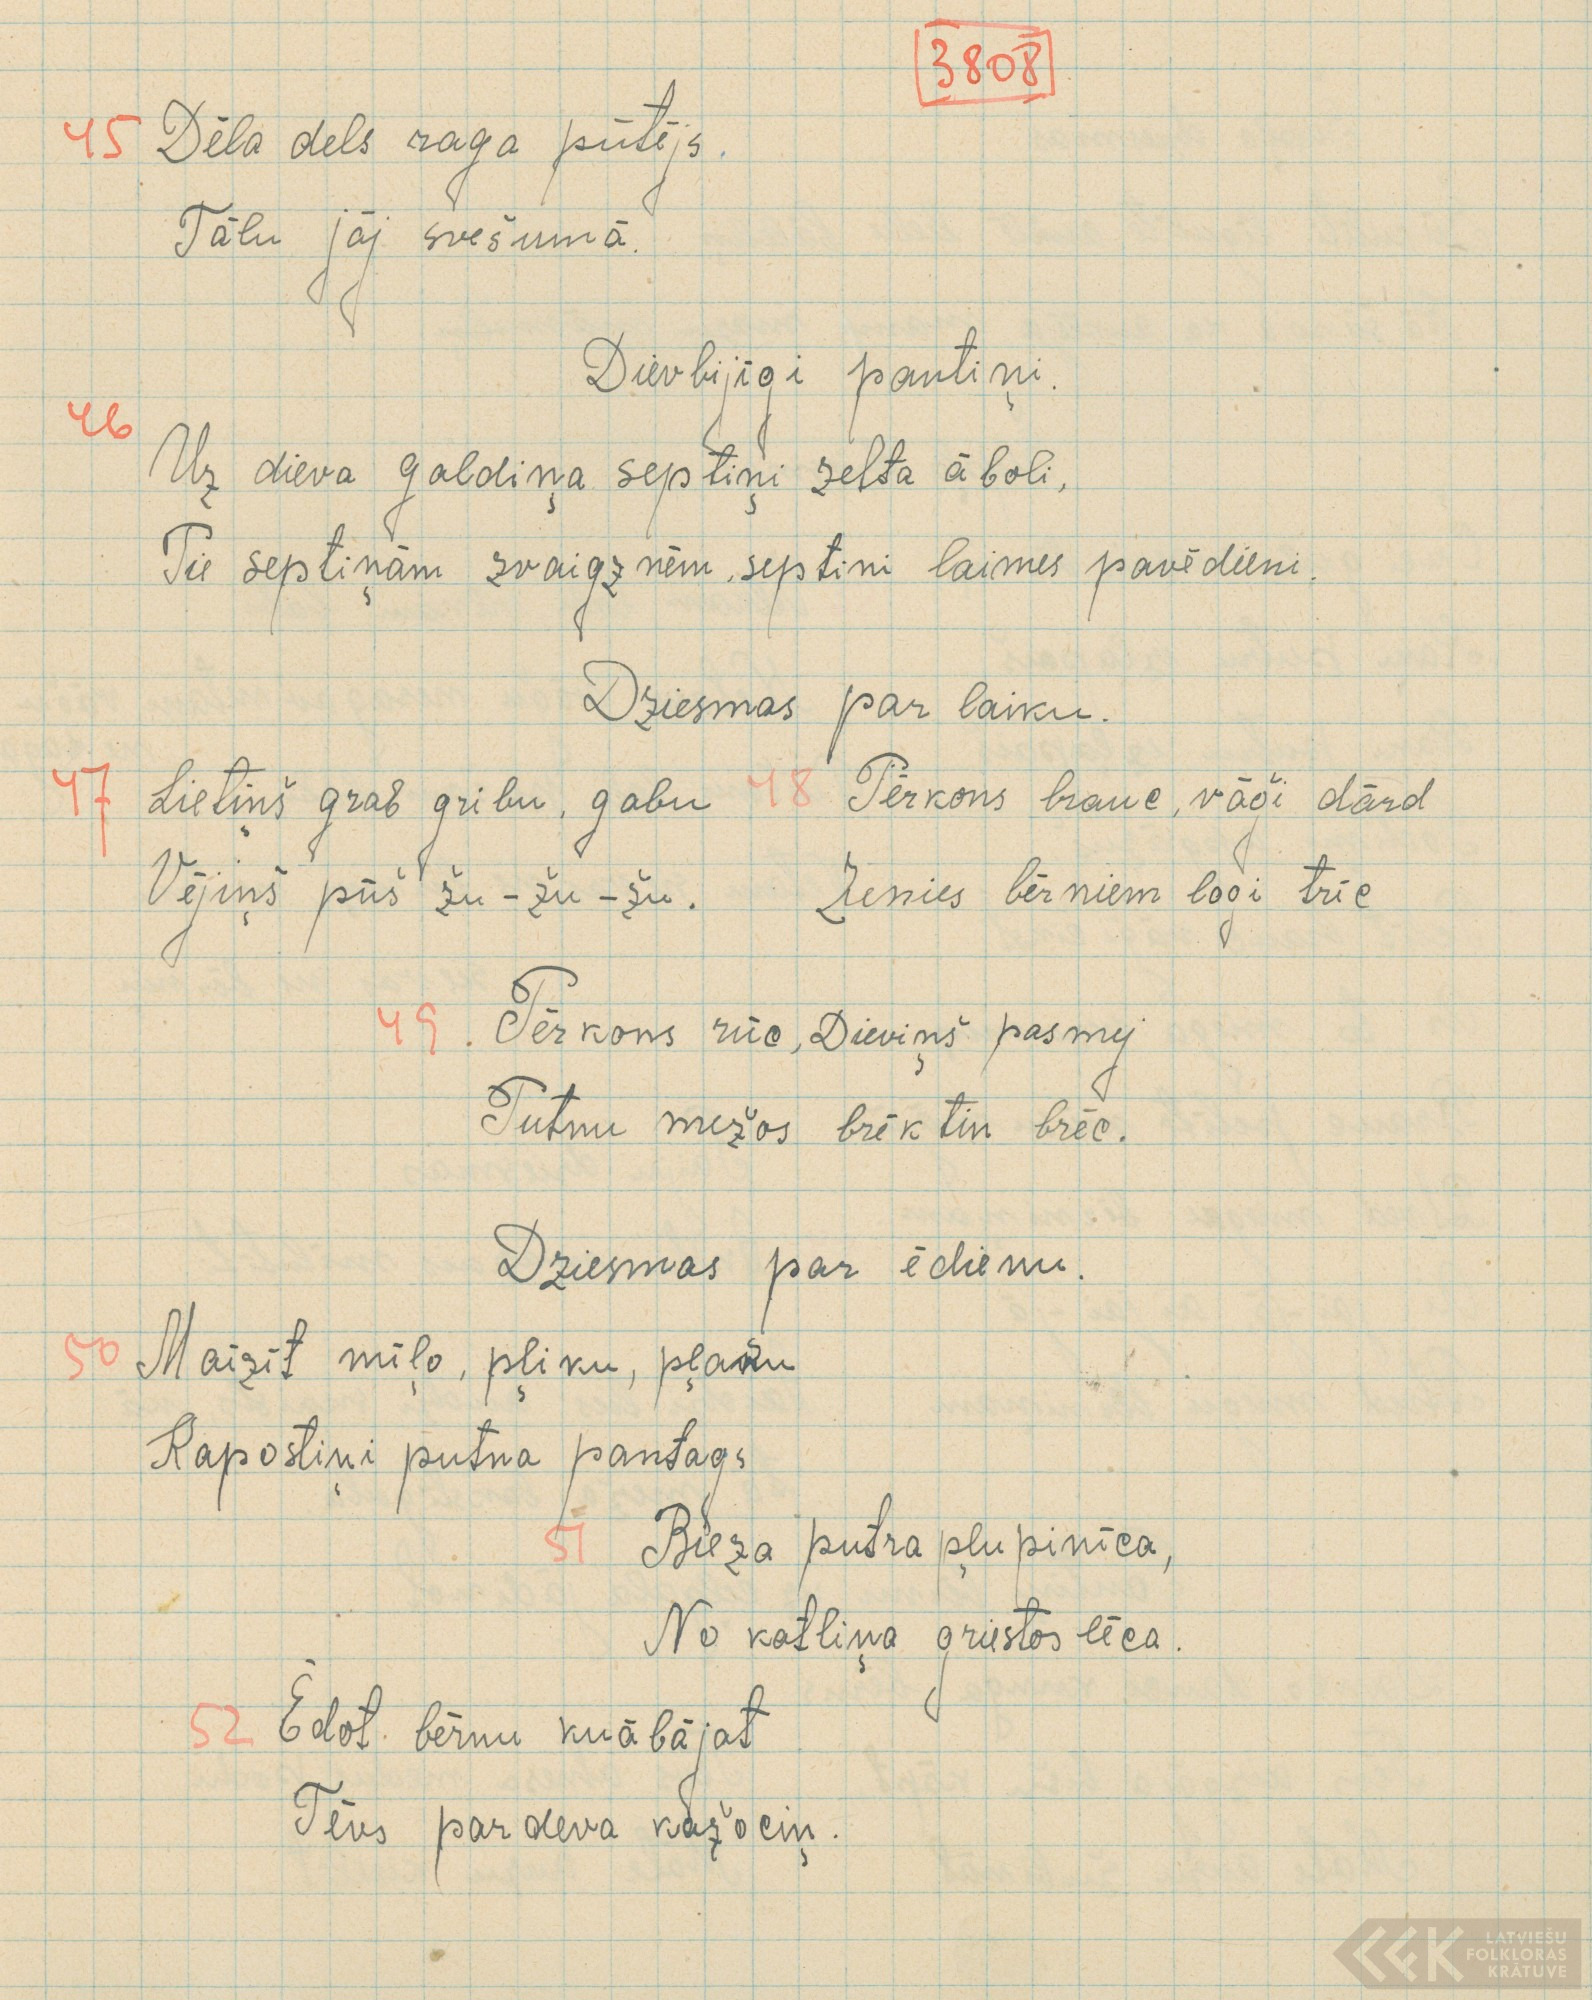 3808
45 Dēla dels raga pūtējs.
Tālu jāj svešumā.
Dievbijīgi pantiņi.
46
Uz dieva galdiņa septiņi zelta āboli,
Tie septiņām zvaigznēm, septini laimes pavēdieni.
Dziesmas par laiku.
47 Lietiņš grab gribu, gabu
Vējiņš pūš žu - žu - žu.
48 Pērkons brauc, vāģi dārd
Zenies bērniem logi trīc
49. Pērkons rūc, Dieviņš pasmej
Putnu mežos brēktin brēc.
Dziesmas par ēdienu.
50 Maizīt mīļo, pļiku, pļaku
Kapostiņi putna pantags
51 Bieza putra pļupinīca,
No katliņa griestos lēca.
52 Ēdot bērnu kuābājat
Tēvs pardeva kažociņ.
LATVIEŠU
FOLKLORAS
KRĀTUVE